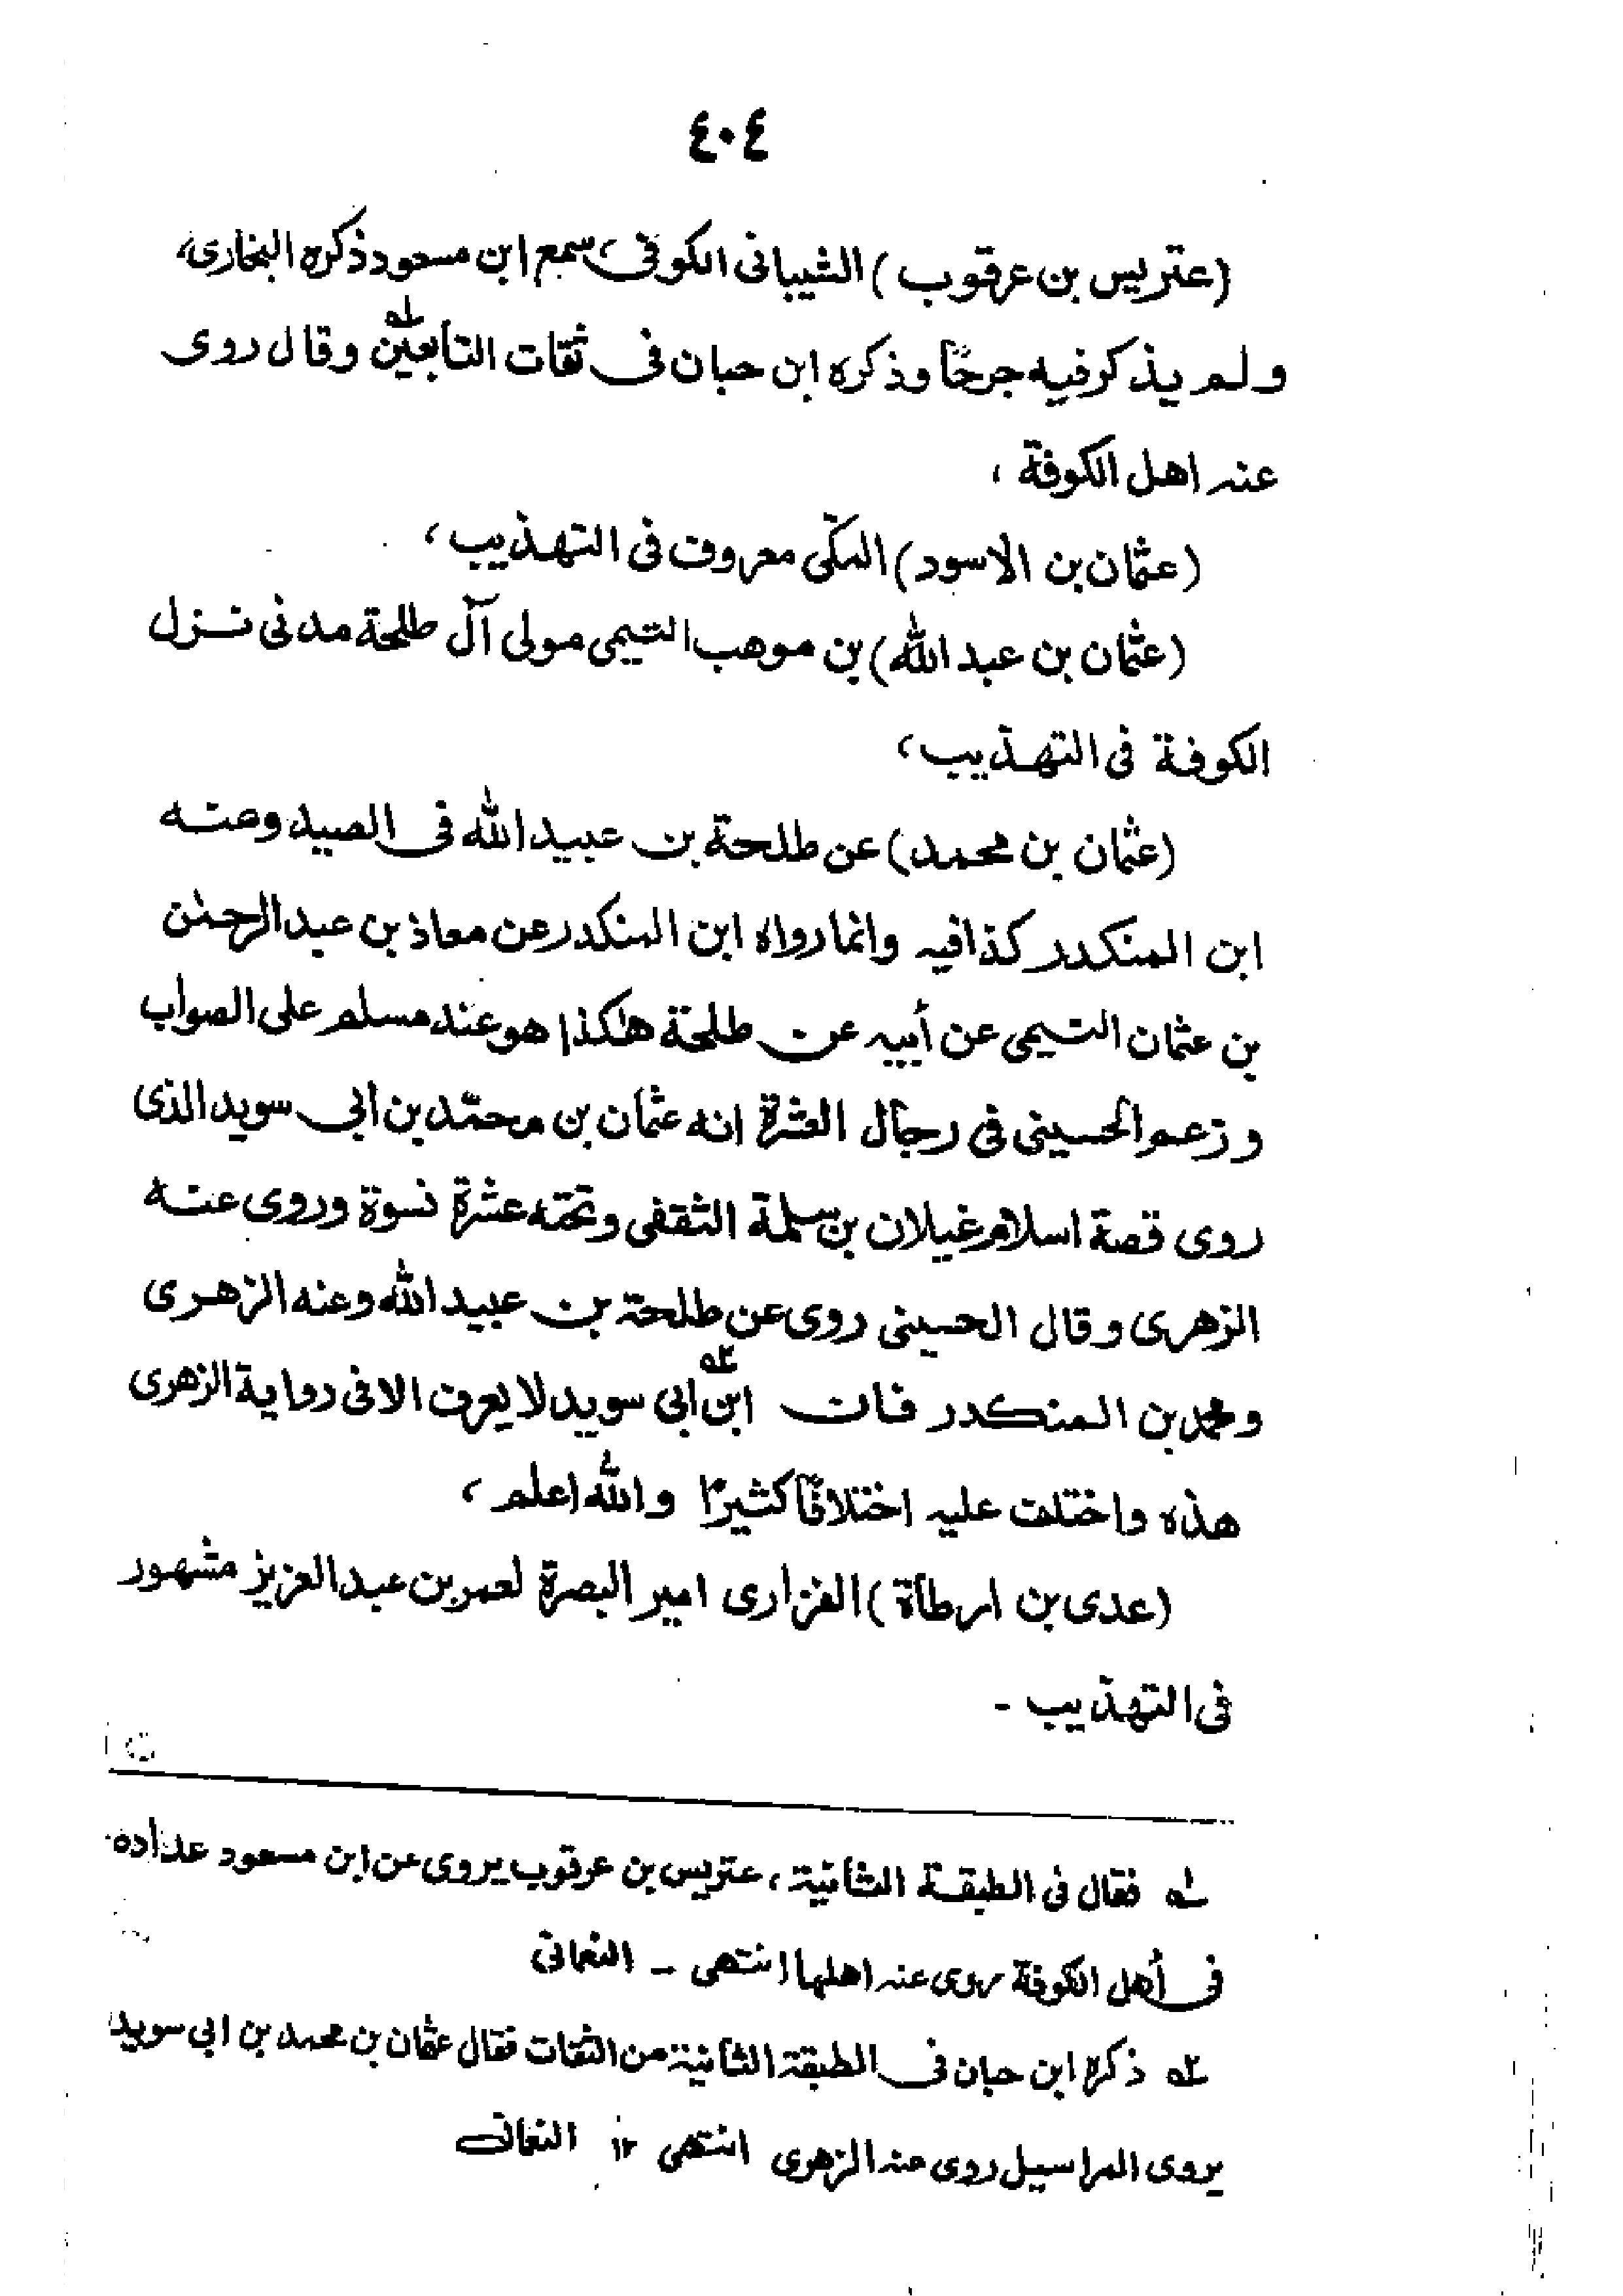 ٤٠٤
(عتريس بن عرقوب) الشيبانى الكوفى، سمع ابن مسعود ذكره البخارى،
ولم يذكر فيه جرحًا وذكره ابن حبان فى ثقات التأبعين له وقال روى
عنه اهل الكوفة ،
(عثمان بن الاسود) المكّى معروف فى التهذيب،
(عثمان بن عبد الله) بن موهب التيمى مولى آل طلحة مدنى نزل
الكوفة فى التهذيب،
(عثمان بن محمد) عن طلحة بن عبيد الله فى الصيد وعنه
ابن المنكدر كذا فيه وانما رواه ابن المنكدر عن معاذ بن عبد الرحمٰن
بن عثمان التيمى عن أبيه عن طلحة هٰكذا هو عند مسلم على الصواب
وزعم الحسينى فى رجال العشرة انه عثمان بن محمّد بن ابى سويد الذى
روى قصة اسلام غيلان بن سلمة الثقفى وتحته عشرة نسوة وروى عنه
الزهرى وقال الحسينى روى عن طلحة بن عبيد الله وعنه الزهرى
ومحمد بن المنكدر فان ابن ابى سويد ٢ه لا يعرف الا فى رواية الزهرى
هذه واختلف عليه اختلافًا كثيرًا والله اعلم ،
(عدى بن ارطأة) الفزارى امير البصرة لعمر بن عبد العزيز مشهور
فى التهذيب -
له فقال فى الطبقة الثانية، عتريس بن عرقوب يروى عن ابن مسعود عداده
فى أهل الكوفة روى عنه اهلها انتهى - النعمانى
٢ه ذكره ابن حبان فى الطبقة الثانية من الثقات فقال عثمان بن محمد بن ابى سويد
يروى المراسيل روى عنه الزهرى انتهى ١٢ النعمانى